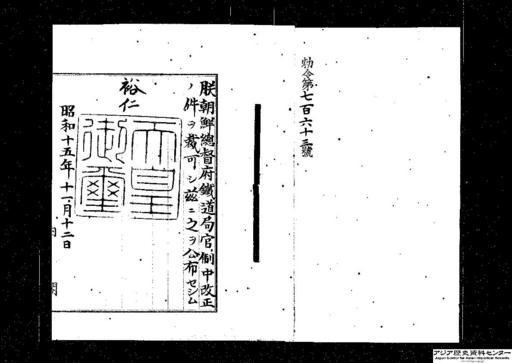 勅令第七百六十三號
朕朝鮮總督府鐵道局官制中改正
ノ件ヲ裁可シ玆ニ之ヲ公布セシム
裕仁
天皇
御璽
昭和十五年十一月十二日
内閣
アジア歴史資料センター
Japan Center for Asian Historical Records